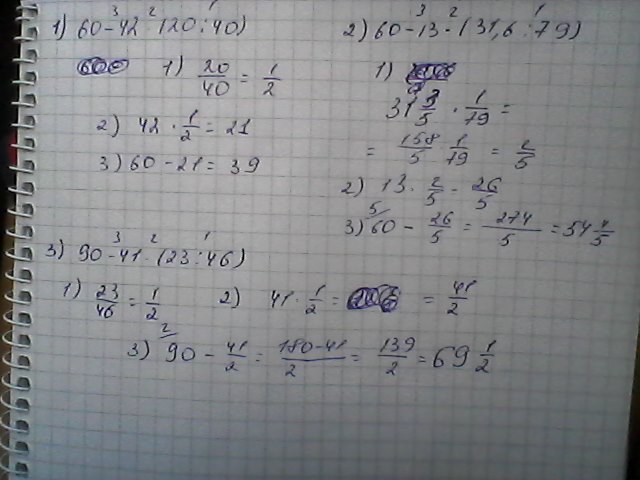 1) 60-42·(20:40)
1) 20/40 = 1/2
2) 42 · 1/2 = 21
3) 60-21 = 39
2) 60-13·(31,6:79)
1)
31 3/5 · 1/79 =
= 158/5 · 1/79 = 2/5
2) 13 · 2/5 = 26/5
3) 60 - 26/5 = 274/5 = 54 4/5
3) 90-41·(23:46)
1) 23/46 = 1/2
2) 41 · 1/2 = = 41/2
3) 90 - 41/2 = 180-41/2 = 139/2 = 69 1/2